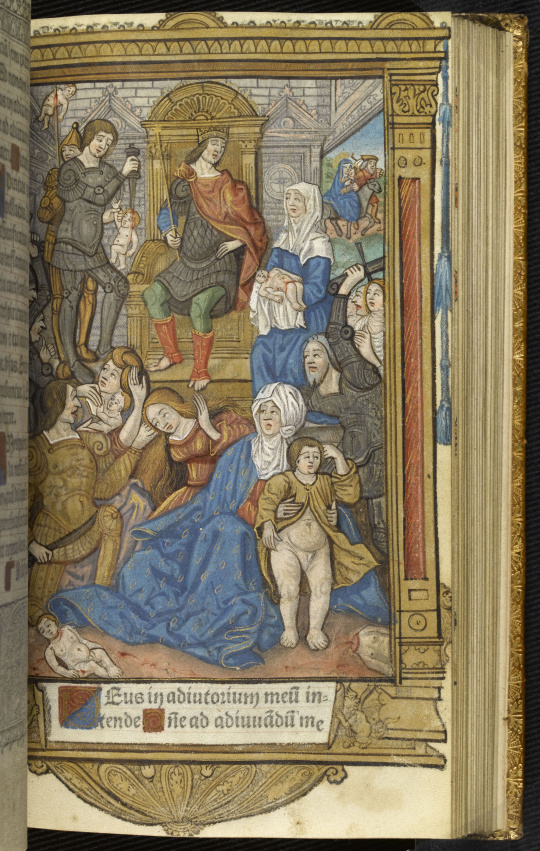 Eus in adiutorium meū in-
tende Dñe ad adiuuādū me